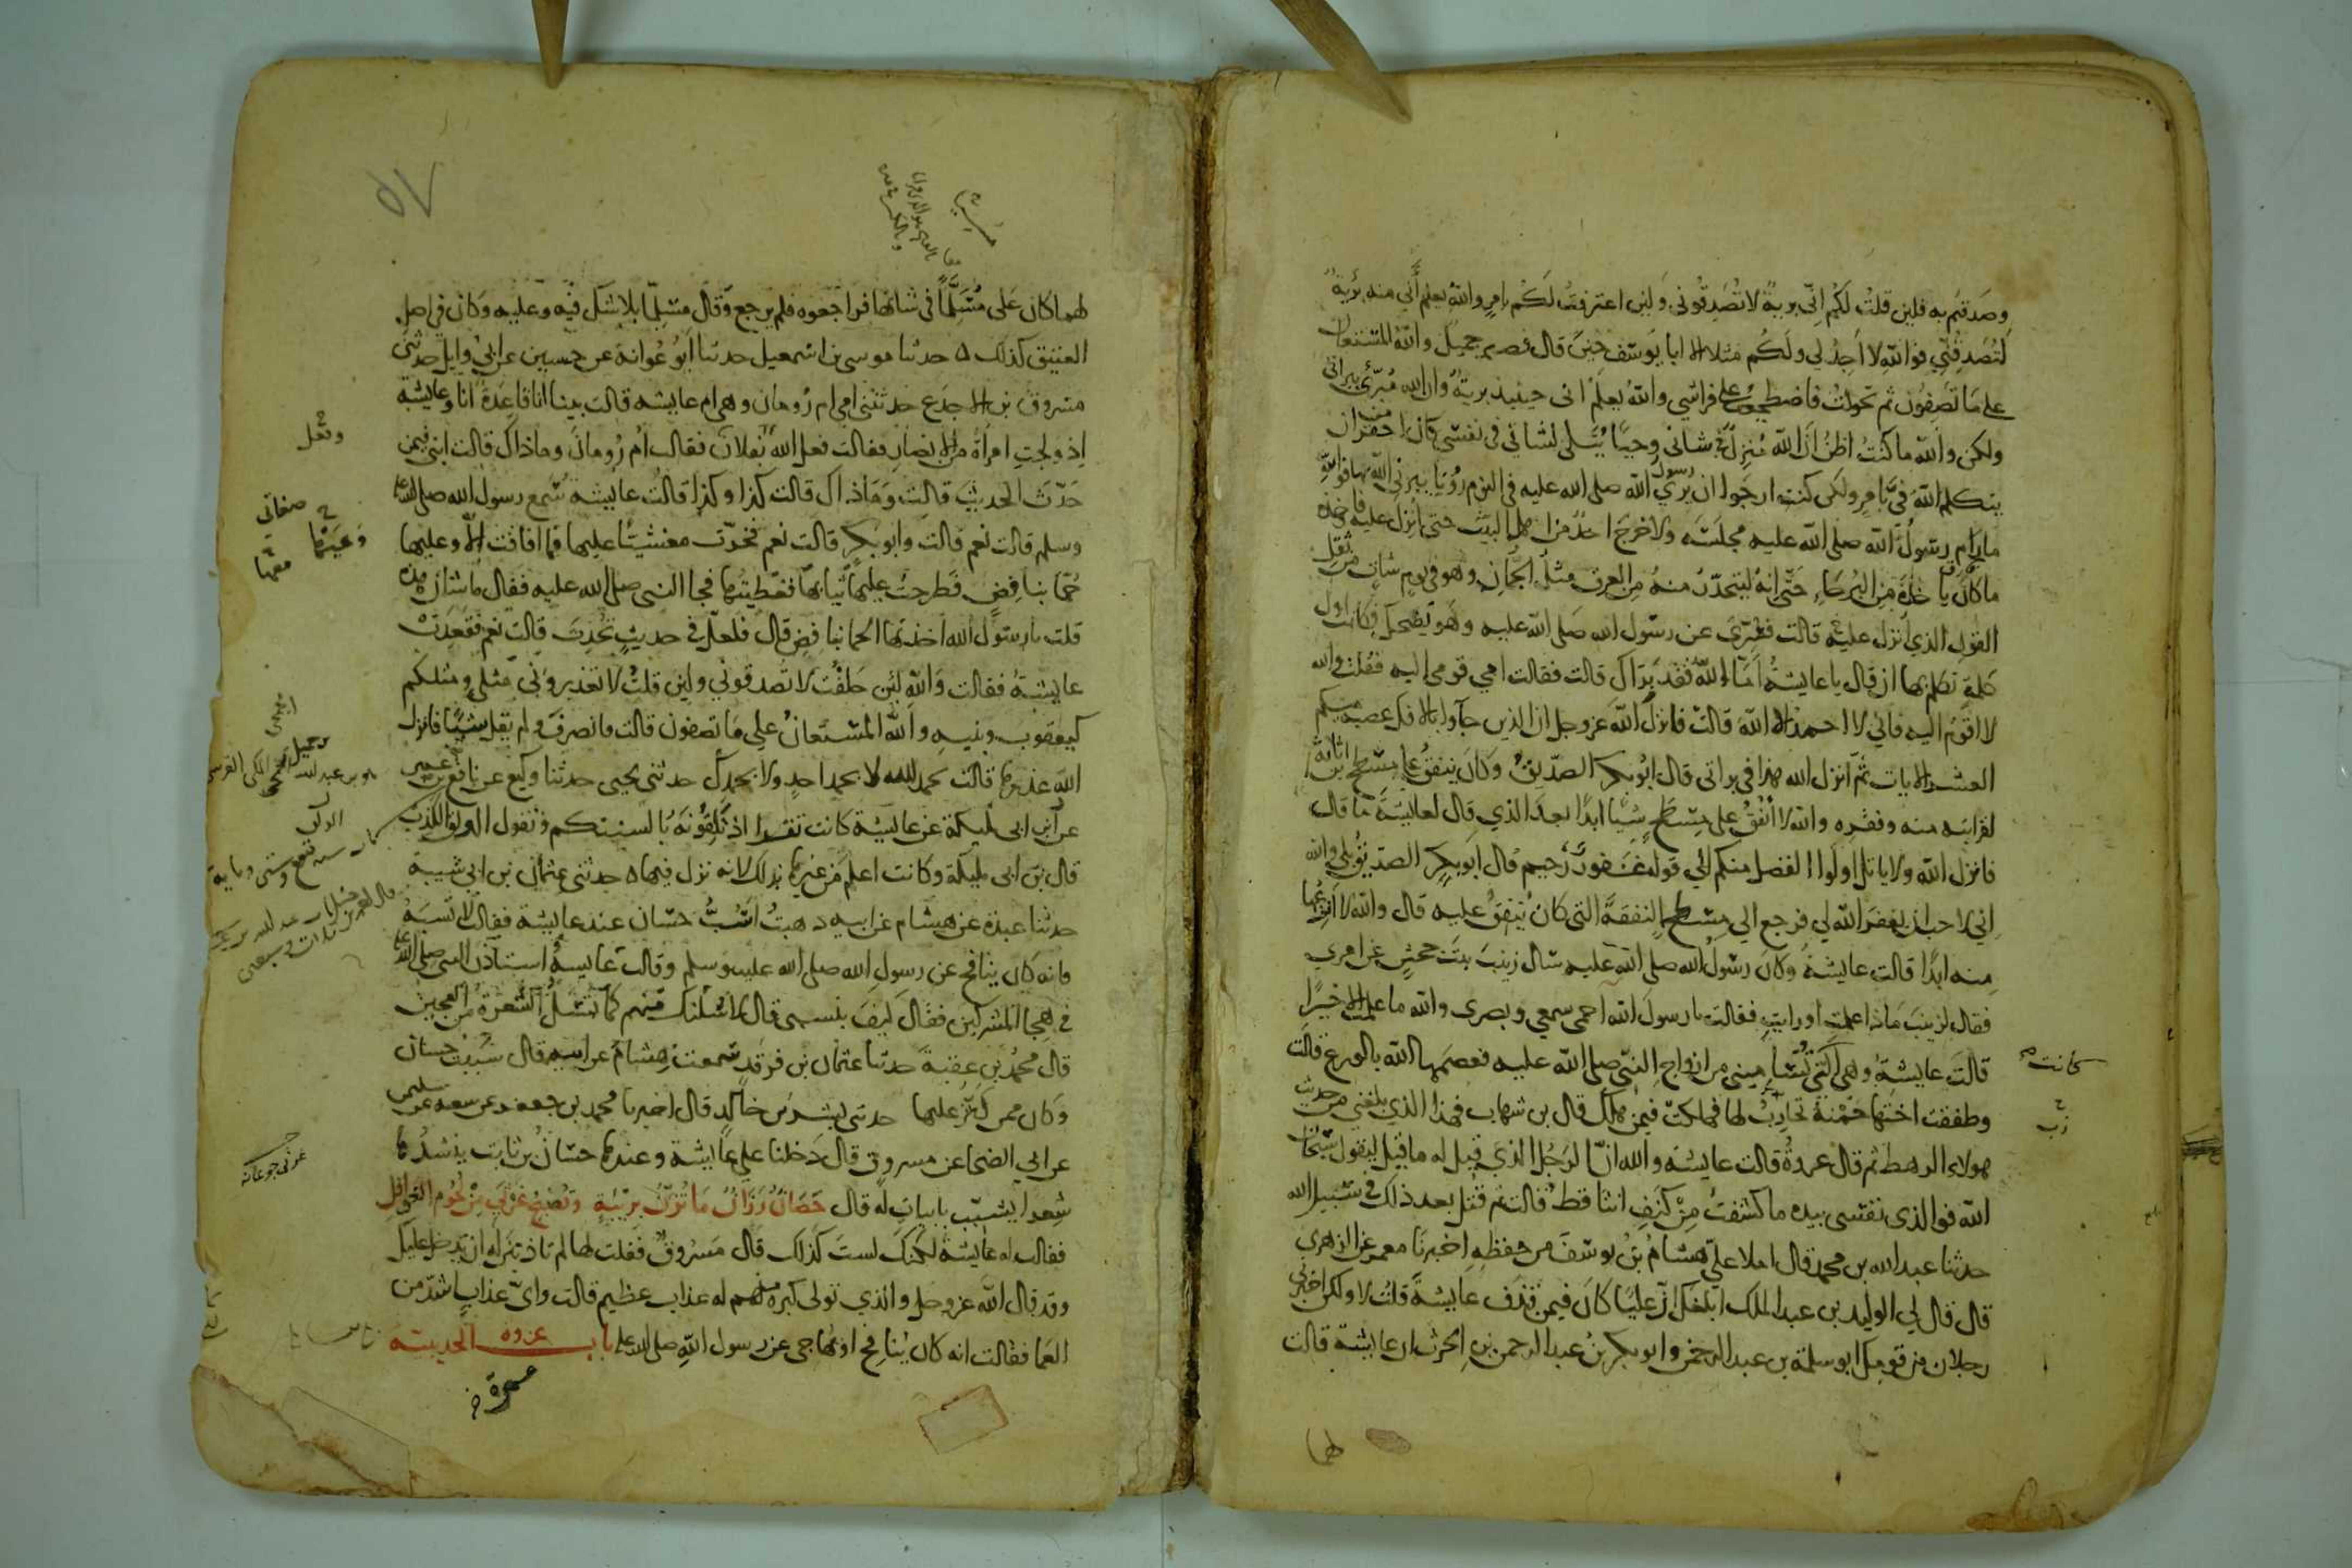 وصدقتم به فلين قلت لكم اني برية لا تصدقوني ولين اعترفت لكم بامر والله يعلم أني منه برية
لتصدقني فوالله لا اجد لي ولكم مثلا الا ابا يوسف حين قال فصبر جميل والله المستعان
على ما تصفون ثم تحولت فاضطجعت على فراشي والله يعلم اني حينيذ برية وان الله مبرئي ببراتي
ولكن والله ما كنت اظن أن الله منزل في شاني وحيا يتلى لشاني في نفسي كان احقر من ان
يتكلم الله في بامر ولكن كنت ارجوا ان يرى رسول الله صلى الله عليه في النوم رؤيا يبرني الله بها فوالله
ما رام رسول الله صلى الله عليه مجلسه ولا خرج احد من اهل البيت حتى انزل عليه فاخذه
ما كان ياخذه من البرحاء حتى انه ليتحدر منه من العرق مثل الجمان وهو في يوم شات من ثقل
القول الذي انزل عليه قالت فسري عن رسول الله صلى الله عليه وهو يضحك فكانت اول
كلمة تكلم بها ان قال يا عايشة أما الله فقد براك قالت فقالت امي قومي اليه فقلت والله
لا اقوم اليه فاني لا احمد الا الله قالت فانزل الله عز وجل ان الذين جاوا بالافك عصبة منكم
العشر الايات ثم انزل الله هذا في براتي قال ابو بكر الصديق وكان ينفق على مسطح بن اثاثة
لقرابته منه وفقره والله لا أنفق على مسطح شيا ابدا بعد الذي قال لعايشة ما قال
فانزل الله ولا ياتل اولوا الفضل منكم الي قوله غفور رحيم قال ابو بكر الصديق بلى والله
اني لاحب ان يغفر الله لي فرجع الي مسطح النفقة التي كان ينفق عليه قال والله لا أنزعها
منه ابدا قالت عايشة وكان رسول الله صلى الله عليه سال زينب بنت جحش عن امري
فقال لزينب ماذا علمت او رايت فقالت يا رسول الله احمى سمعي وبصرى والله ما علمت الا خيرا
قالت عايشة وهي التي تساميني من ازواج النبي صلى الله عليه فعصمها الله بالورع قالت
كانت
وطفقت اختها حمنة تحارب لها فهلكت فيمن هلك قال بن شهاب فهذا الذي بلغني من حديث
هولاء الرهط ثم قال عروة قالت عايشة والله ان الرجل الذي قيل له ما قيل ليقول سبحان
الله فوالذى نفسي بيده ما كشفت من كنف انثا قط قالت ثم قتل بعد ذلك في سبيل الله
حدثنا عبد الله بن محمد قال املا علي هشام بن يوسف من حفظه اخبرنا معمر عن الزهري
قال قال لي الوليد بن عبد الملك ابلغك ان عليا كان فيمن قذف عايشة قلت لا ولكن اخبرني
رجلان من قومك ابو سلمة بن عبد الرحمن وابو بكر بن عبد الرحمن بن الحرث ان عايشة قالت
لها
لهما كان على مسلما في شانها فراجعوه فلم يرجع وقال مسلما بلا شك فيه وعليه وكان في اصل
العتيق كذلك حدثنا موسى بن اسمعيل حدثنا أبو عوانة عن حصين عن ابي وايل حدثني
مسروق بن الاجدع حدثتني امي ام رومان وهي ام عايشة قالت بينا انا قاعدة انا وعايشة
إذ ولجت امراة من الانصار فقالت فعل الله بفلان فقالت ام رومان وما ذاك قالت ابني فيمن
حدث الحديث قالت وما ذاك قالت كذا وكذا قالت عايشة سمع رسول الله صلى الله عليه
وسلم قالت نعم قالت وابو بكر قالت نعم فخرت مغشيا عليها فما افاقت الا وعليها
حمى بنافض فطرحت عليها ثيابها فغطيتها فجا النبي صلى الله عليه فقال ما شان هذه
قلت يا رسول الله اخذتها الحما بنافض قال فلعل في حديث تحدث قالت نعم فقعدت
عايشة فقالت والله لئن حلفت لا تصدقوني ولين قلت لا تعذيروني مثلي ومثلكم
كيعقوب وبنيه والله المستعان على ما تصفون قالت وانصرف ولم يقل شيا فانزل
الله عذرها قالت بحمد الله لا بحمد احد ولا بحمدك حدثني يحيى حدثنا وكيع عن نافع بن عمر
عن ابن ابي مليكة عن عايشة كانت تقرا اذ تلقونه بالسنتكم وتقول الولق الكذب
قال بن ابي مليكة وكانت اعلم من غيرها بذلك لانه نزل فيها حدثني عثمان بن ابي شيبة
حدثنا عبدة عن هشام عن ابيه ذهبت أسب حسان عند عايشة فقالت لا تسبه
فانه كان ينافح عن رسول الله صلى الله عليه وسلم وقالت عايشة استاذن النبي صلى الله عليه
في هجا المشركين فقال كيف بنسبي قال لاسلنك منهم كما تسل الشعرة من العجين
قال محمد بن عقبة حدثنا عثمان بن فرقد سمعت هشاما عن ابيه قال سببت حسان
وكان ممن كثر عليها حدثني بشر بن خالد قال اخبرنا محمد بن جعفر عن شعبة عن سليمن
عن ابي الضحا عن مسروق قال دخلنا على عايشة وعندها حسان بن ثابت ينشدها
شعرا يشبب بابيات له قال حصان رزان ما تزن بريبة وتصبح غرثى من لحوم الغوافل
فقالت له عايشة لكنك لست كذلك قال مسروق فقلت لها لم تاذنين له ان يدخل عليك
وقد قال الله عز وجل والذي تولى كبره منهم له عذاب عظيم قالت واي عذاب اشد من
العما فقالت انه كان ينافح او يهاجي عن رسول الله صلى الله عليه باب غزوه الحديبية
عمرة